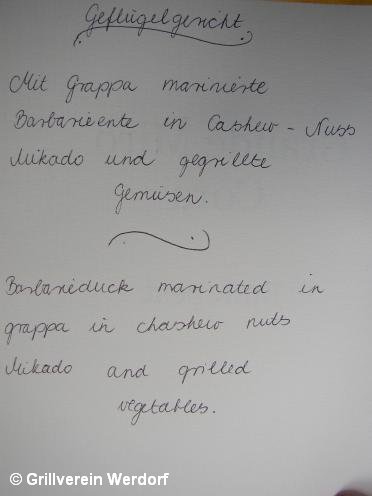 Geflügelgericht
Mit Grappa marinierte
Barbarieente in Cashew - Nuss
Mikado und gegrillte
Gemüsen.
Barbarieduck marinated in
grappa in chashew nuts
Mikado and grilled
vegetables.
© Grillverein Werdorf